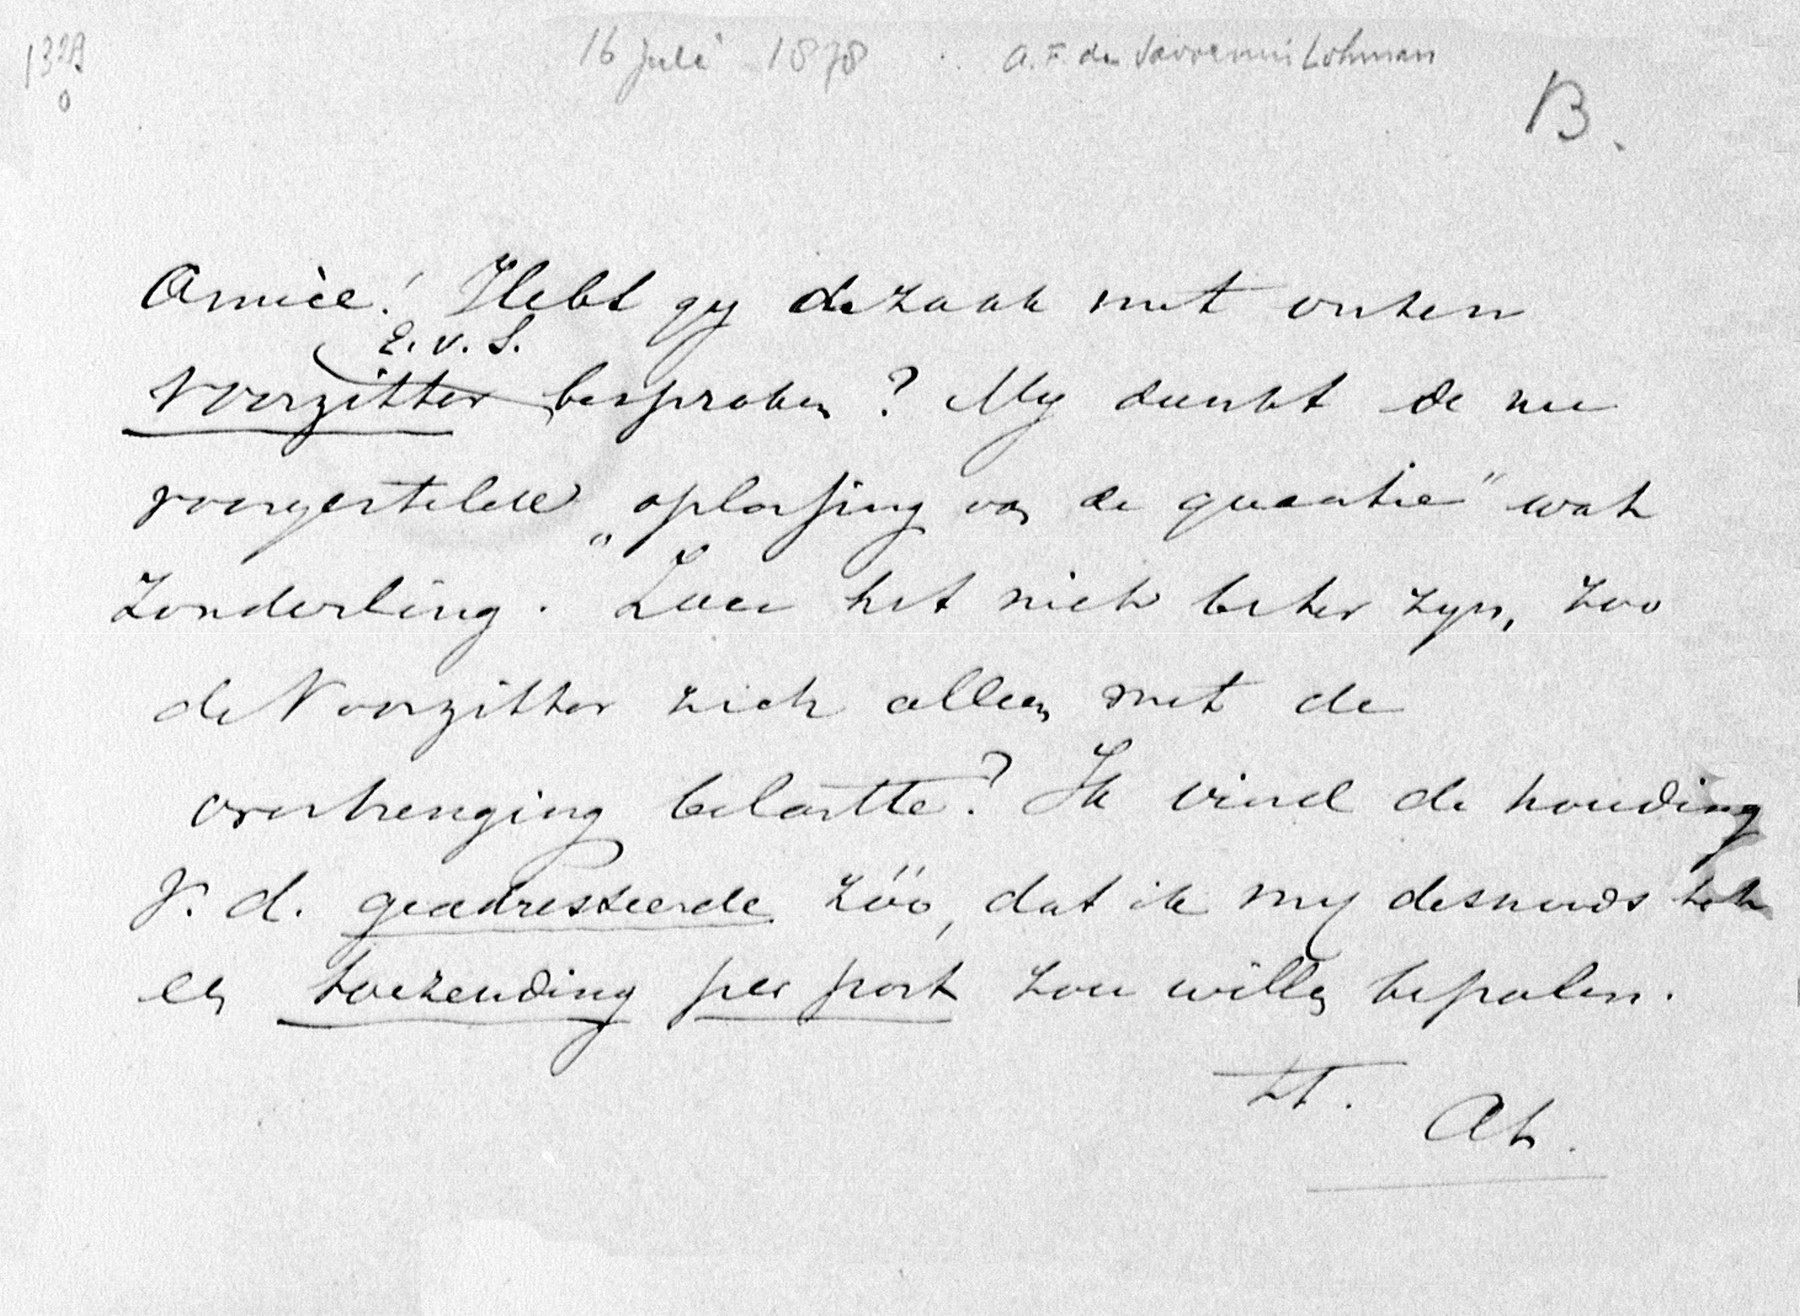 1329
0
16 Juli 1878 A. F. de Savornin Lohman
B.
Amice! Hebt gy de zaak met onzen
E. v. S.
Voorzitter besproken? My dunkt de nu
voorgestelde „oplossing van de quaestie" wat
zonderling. Zou het niet beter zyn, zoo
de Voorzitter zich alleen met de
overbrenging belastte? Ik vind de houding
v. d. geadresseerde zóó, dat ik my desnoods tot
een toezending per post zou willen bepalen.
tt.